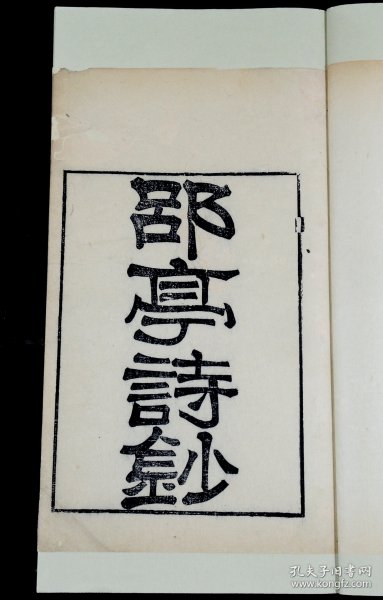 郘亭詩鈔
孔夫子旧书网
www.kongfz.com